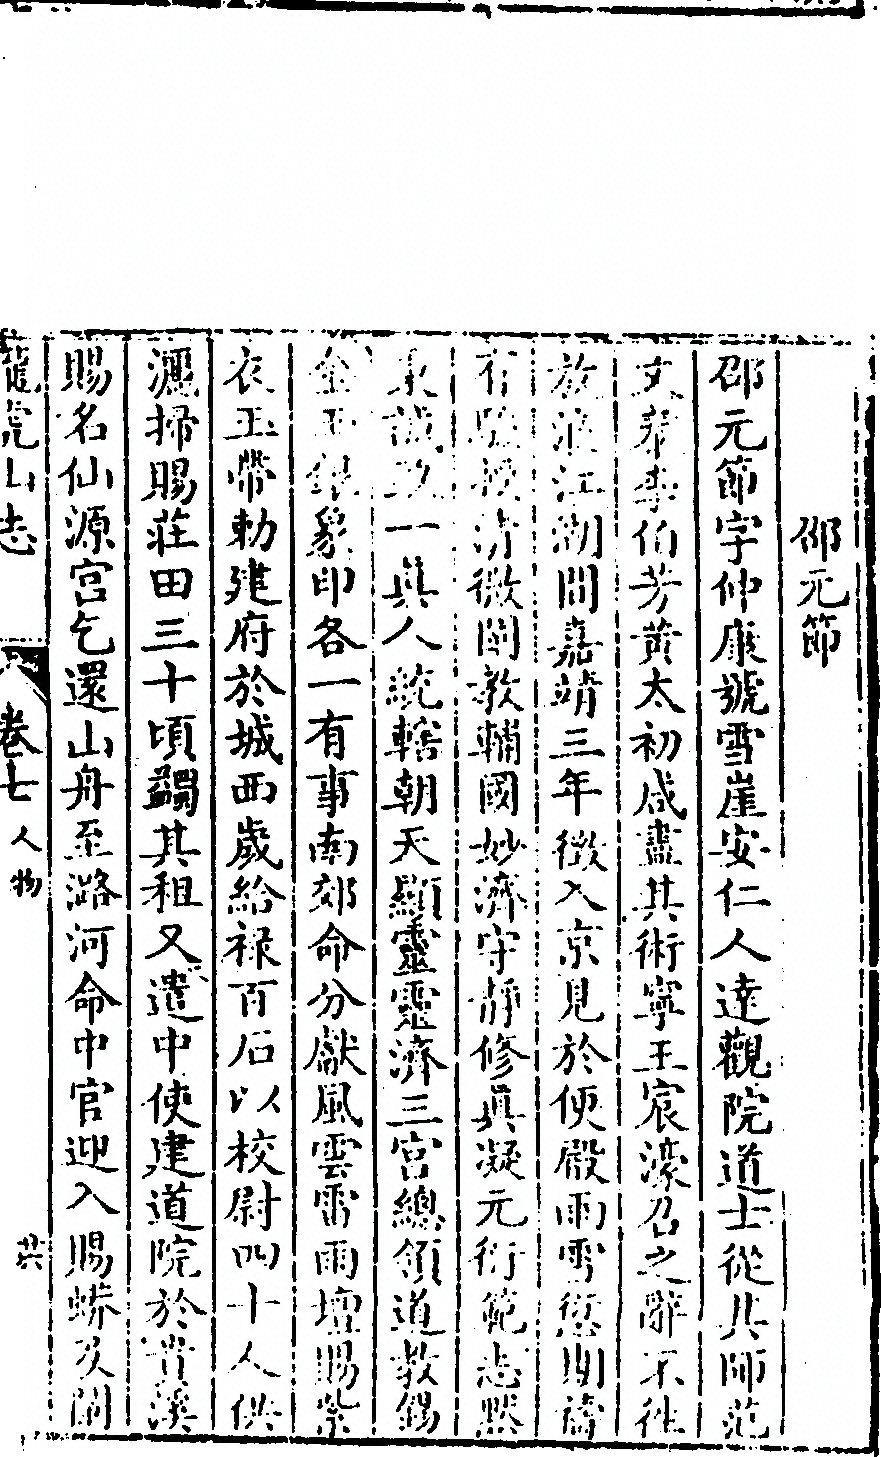 邵元節
邵元節字仲康號雪崖安仁人達觀院道士從其師范
文泰李伯芳黃太初咸盡其術寧王宸濠召之辭不往
放浪江湖間嘉靖三年徵入京見於便殿雨雪愆期禱
有驗授清微闡教輔國妙濟守靜修真凝元衍範志默
秉誠致一真人統轄朝天顯靈靈濟三宮總領道教錫
金玉銀象印各一有事南郊命分獻風雲雷雨壇賜紫
衣玉帶勅建府於城西歲給祿百石以校尉四十人供
灑掃賜莊田三十頃蠲其租又遣中使建道院於貴溪
賜名仙源宮乞還山舟至潞河命中官迎入賜蟒衣闡
龍虎山志 卷七 人物